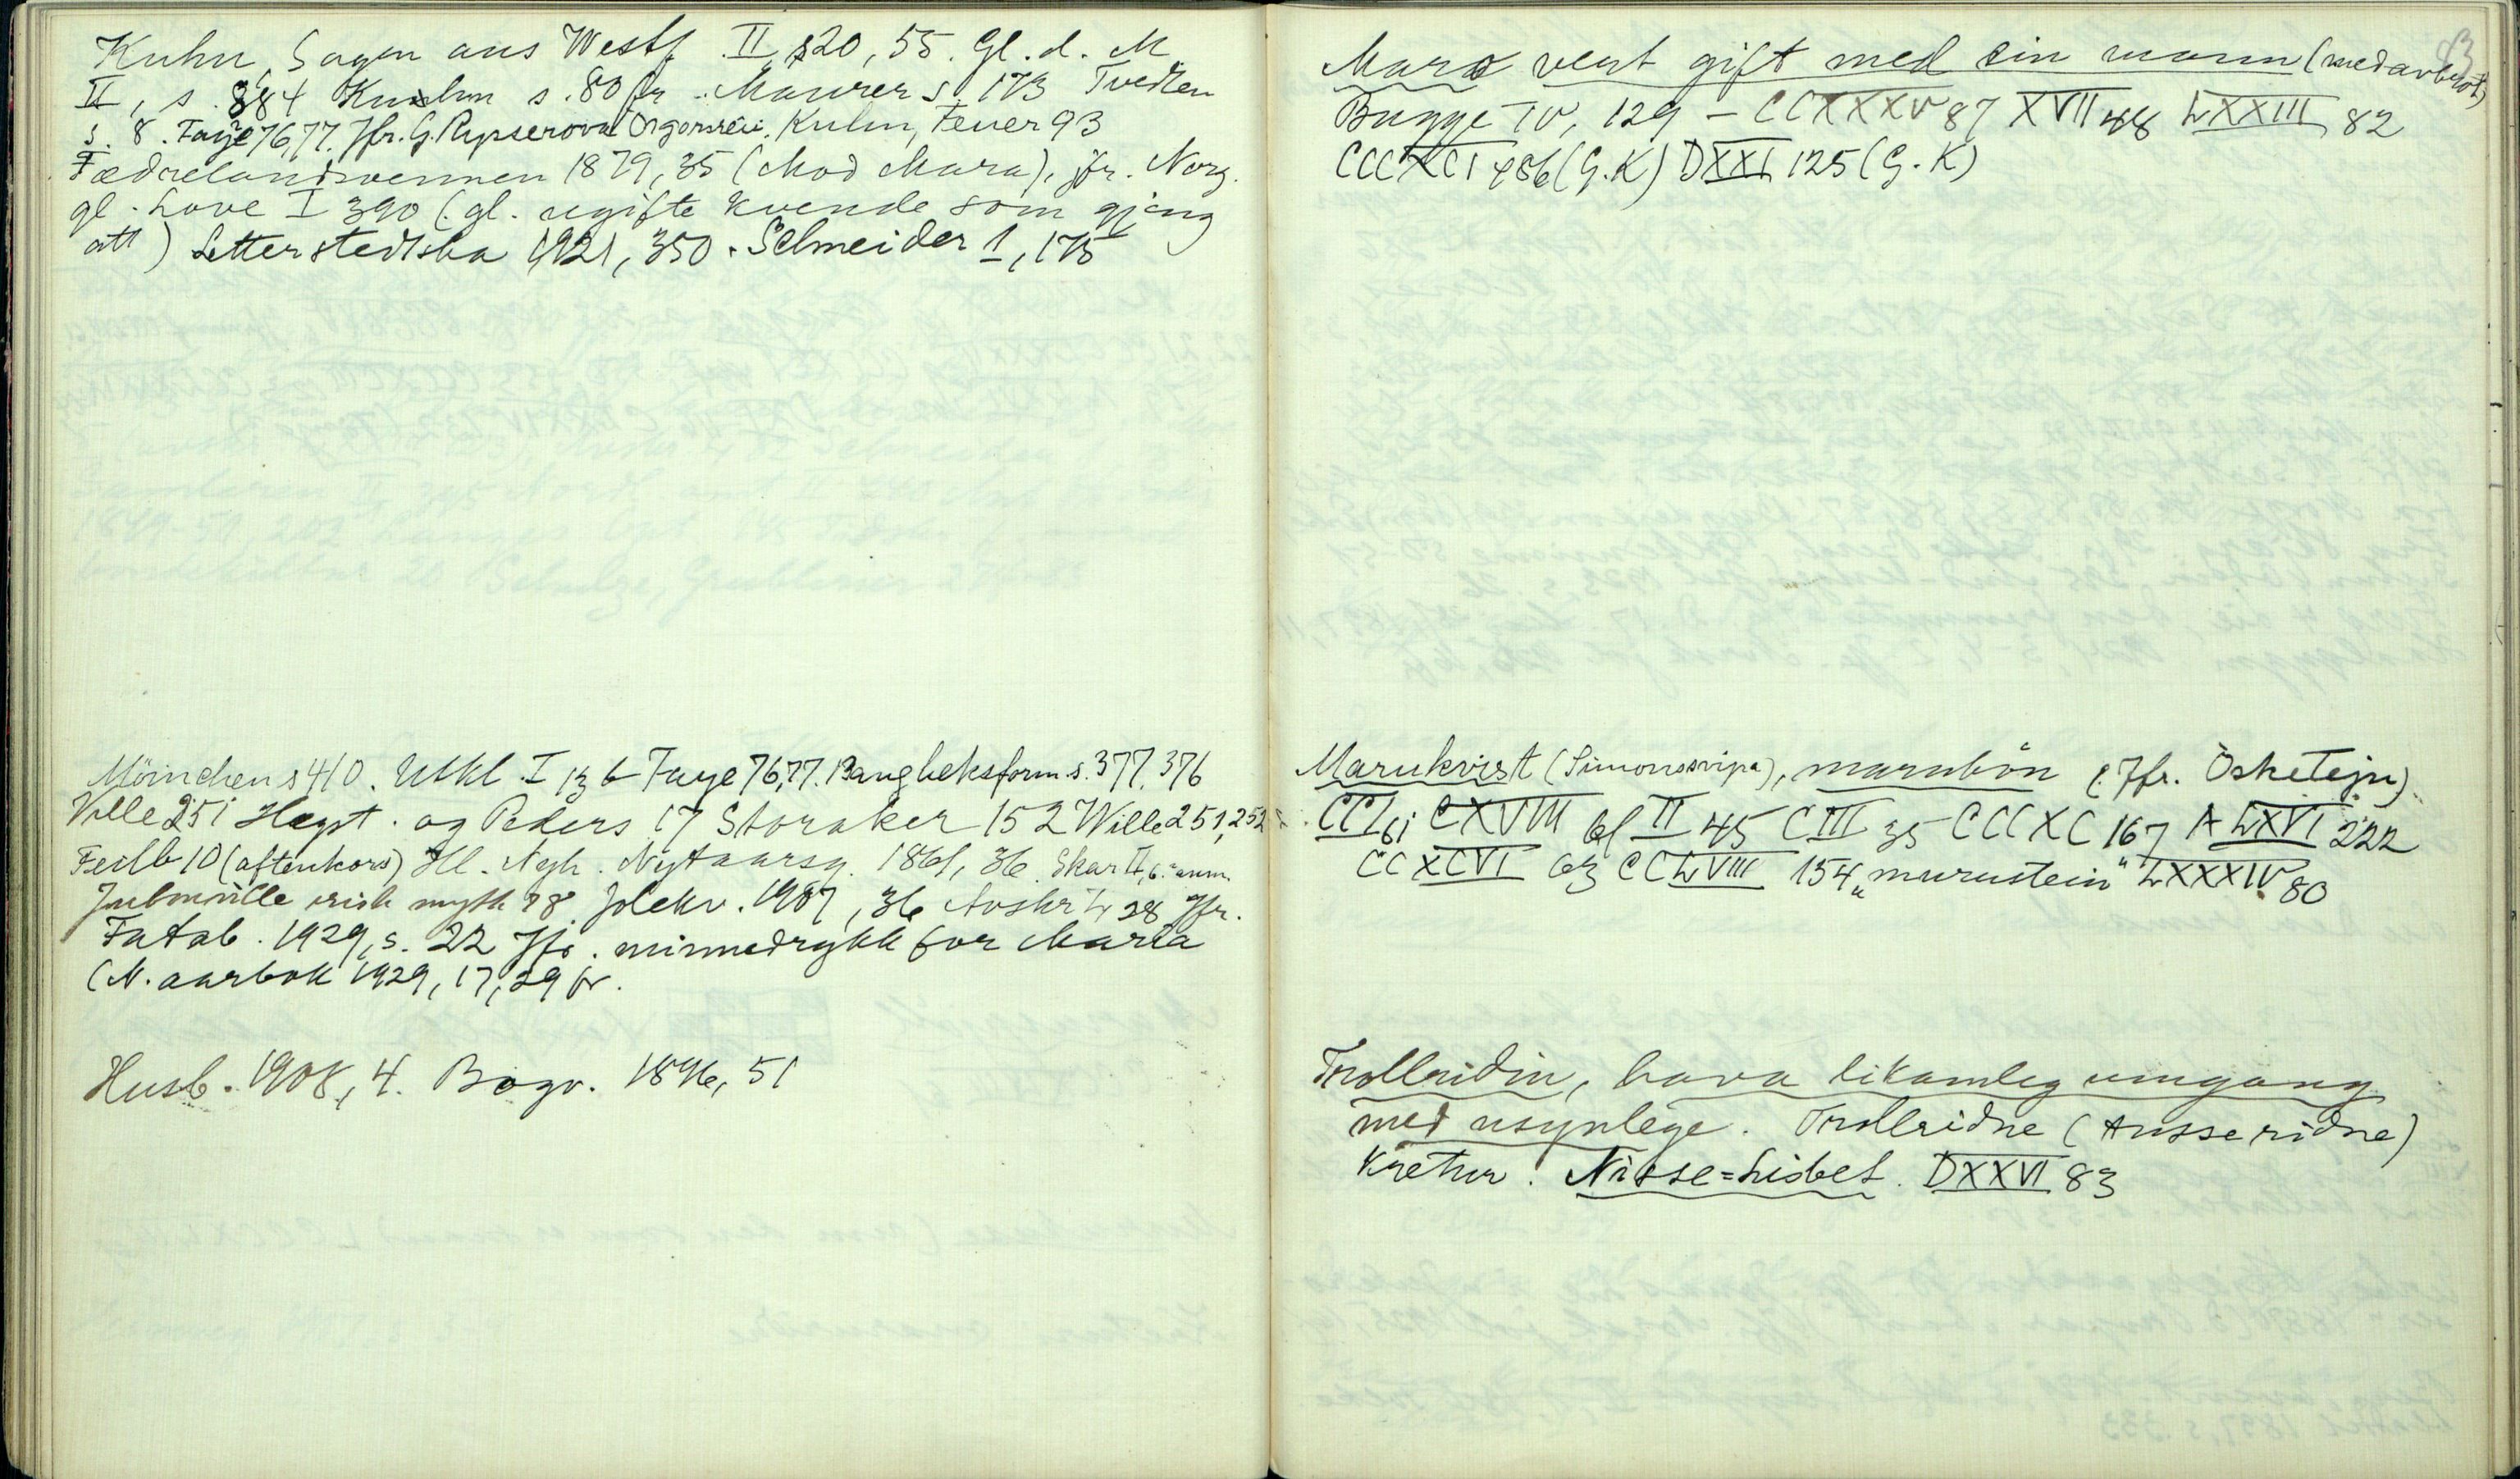 Kuhn, Sagen aus Westf. II, s 20, 55. Gl. d. M
II, s. 884 Kuhn s. 80 fr. Maurer s. 173 Tvedten
s. 8. Faye 76, 77. Jfr. G. Kuhn, Feuer 93
Fædrelandsvennen 1879, 35 (Mod Mara), jfr. Norg.
gl. Love I 390 (gl. ugifte kvende som gjeng
att) Letterstedtska 1921, 350. Schneider 1, 175
s 410. Utkl. I 136 Faye 76, 77. Bang heksform. s. 377, 376
Wille 251 Hægst. og Peders 17 Storaker 152 Wille 251, 252
Feilb 10 (aftenkors) Hl. Agh. Nytaarsg. 1861, 36. Skar II, 6. anm.
irish myth 78. Jolekv. 1987, 36 Avskr. L 28 Jfr.
Fatab. 1929, s. 22 Jfr. minnedrykk for Maria
(N. aarbok 1929, 17, 29 fr.
Husb. 1908, 4. Bogv. 1896, 51
83
Mara vert gift med ein mann (medarbeot)
Bugge IV, 129 – CCXXXV 87 XVII 48 LXXIII 82
CCCXCI 486 (G.K) DXXI 125 (G.K)
Marukvist (Simonssvipa), marubön (Jfr. Östketejn).
CCI 61 CXVIII 61 II 45 CIII 35 CCCXC 167 A LXVI 222
CCXCVI 63 CCLVIII 154 "murustein" LXXXIV 80
Trollridin, hava likamleg umgang
med usynlege. Trollridne (tusseridne)
kretur. Nisse=Lisbet. DXXVI 83